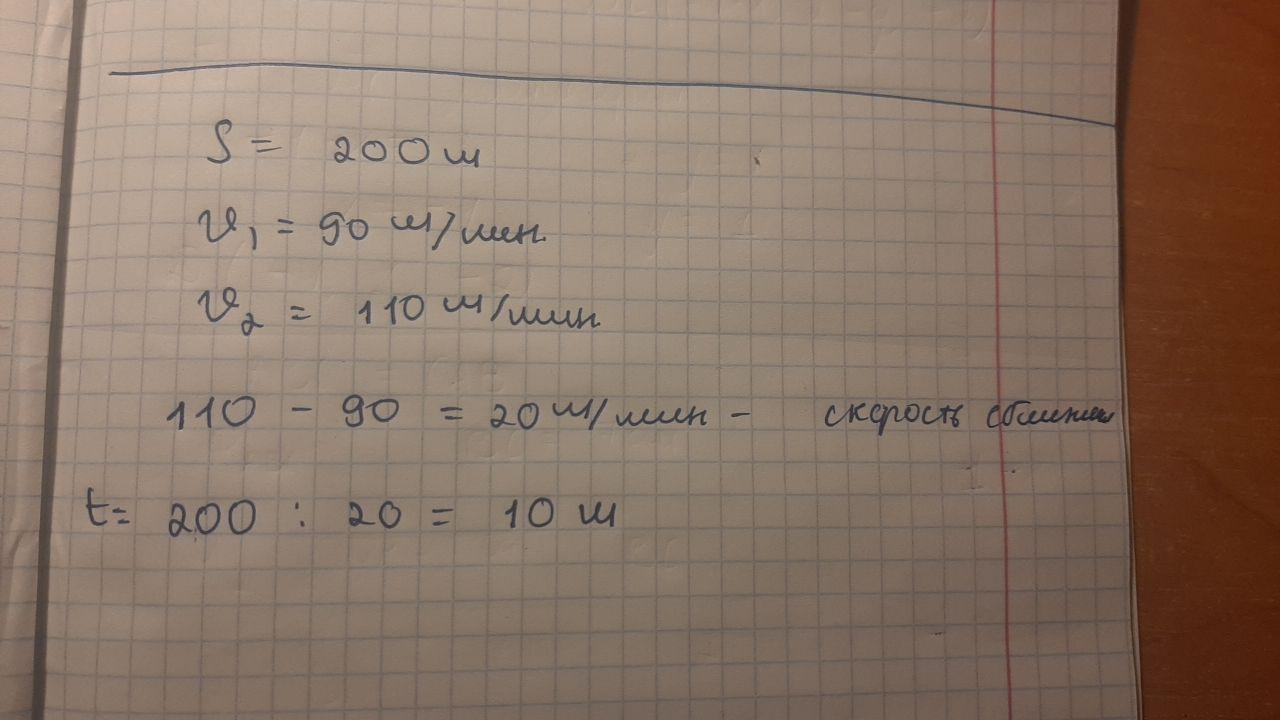 S = 200 м
v₁ = 90 м/мин.
v₂ = 110 м/мин.
110 - 90 = 20 м/мин - скорость
t = 200 : 20 = 10 м